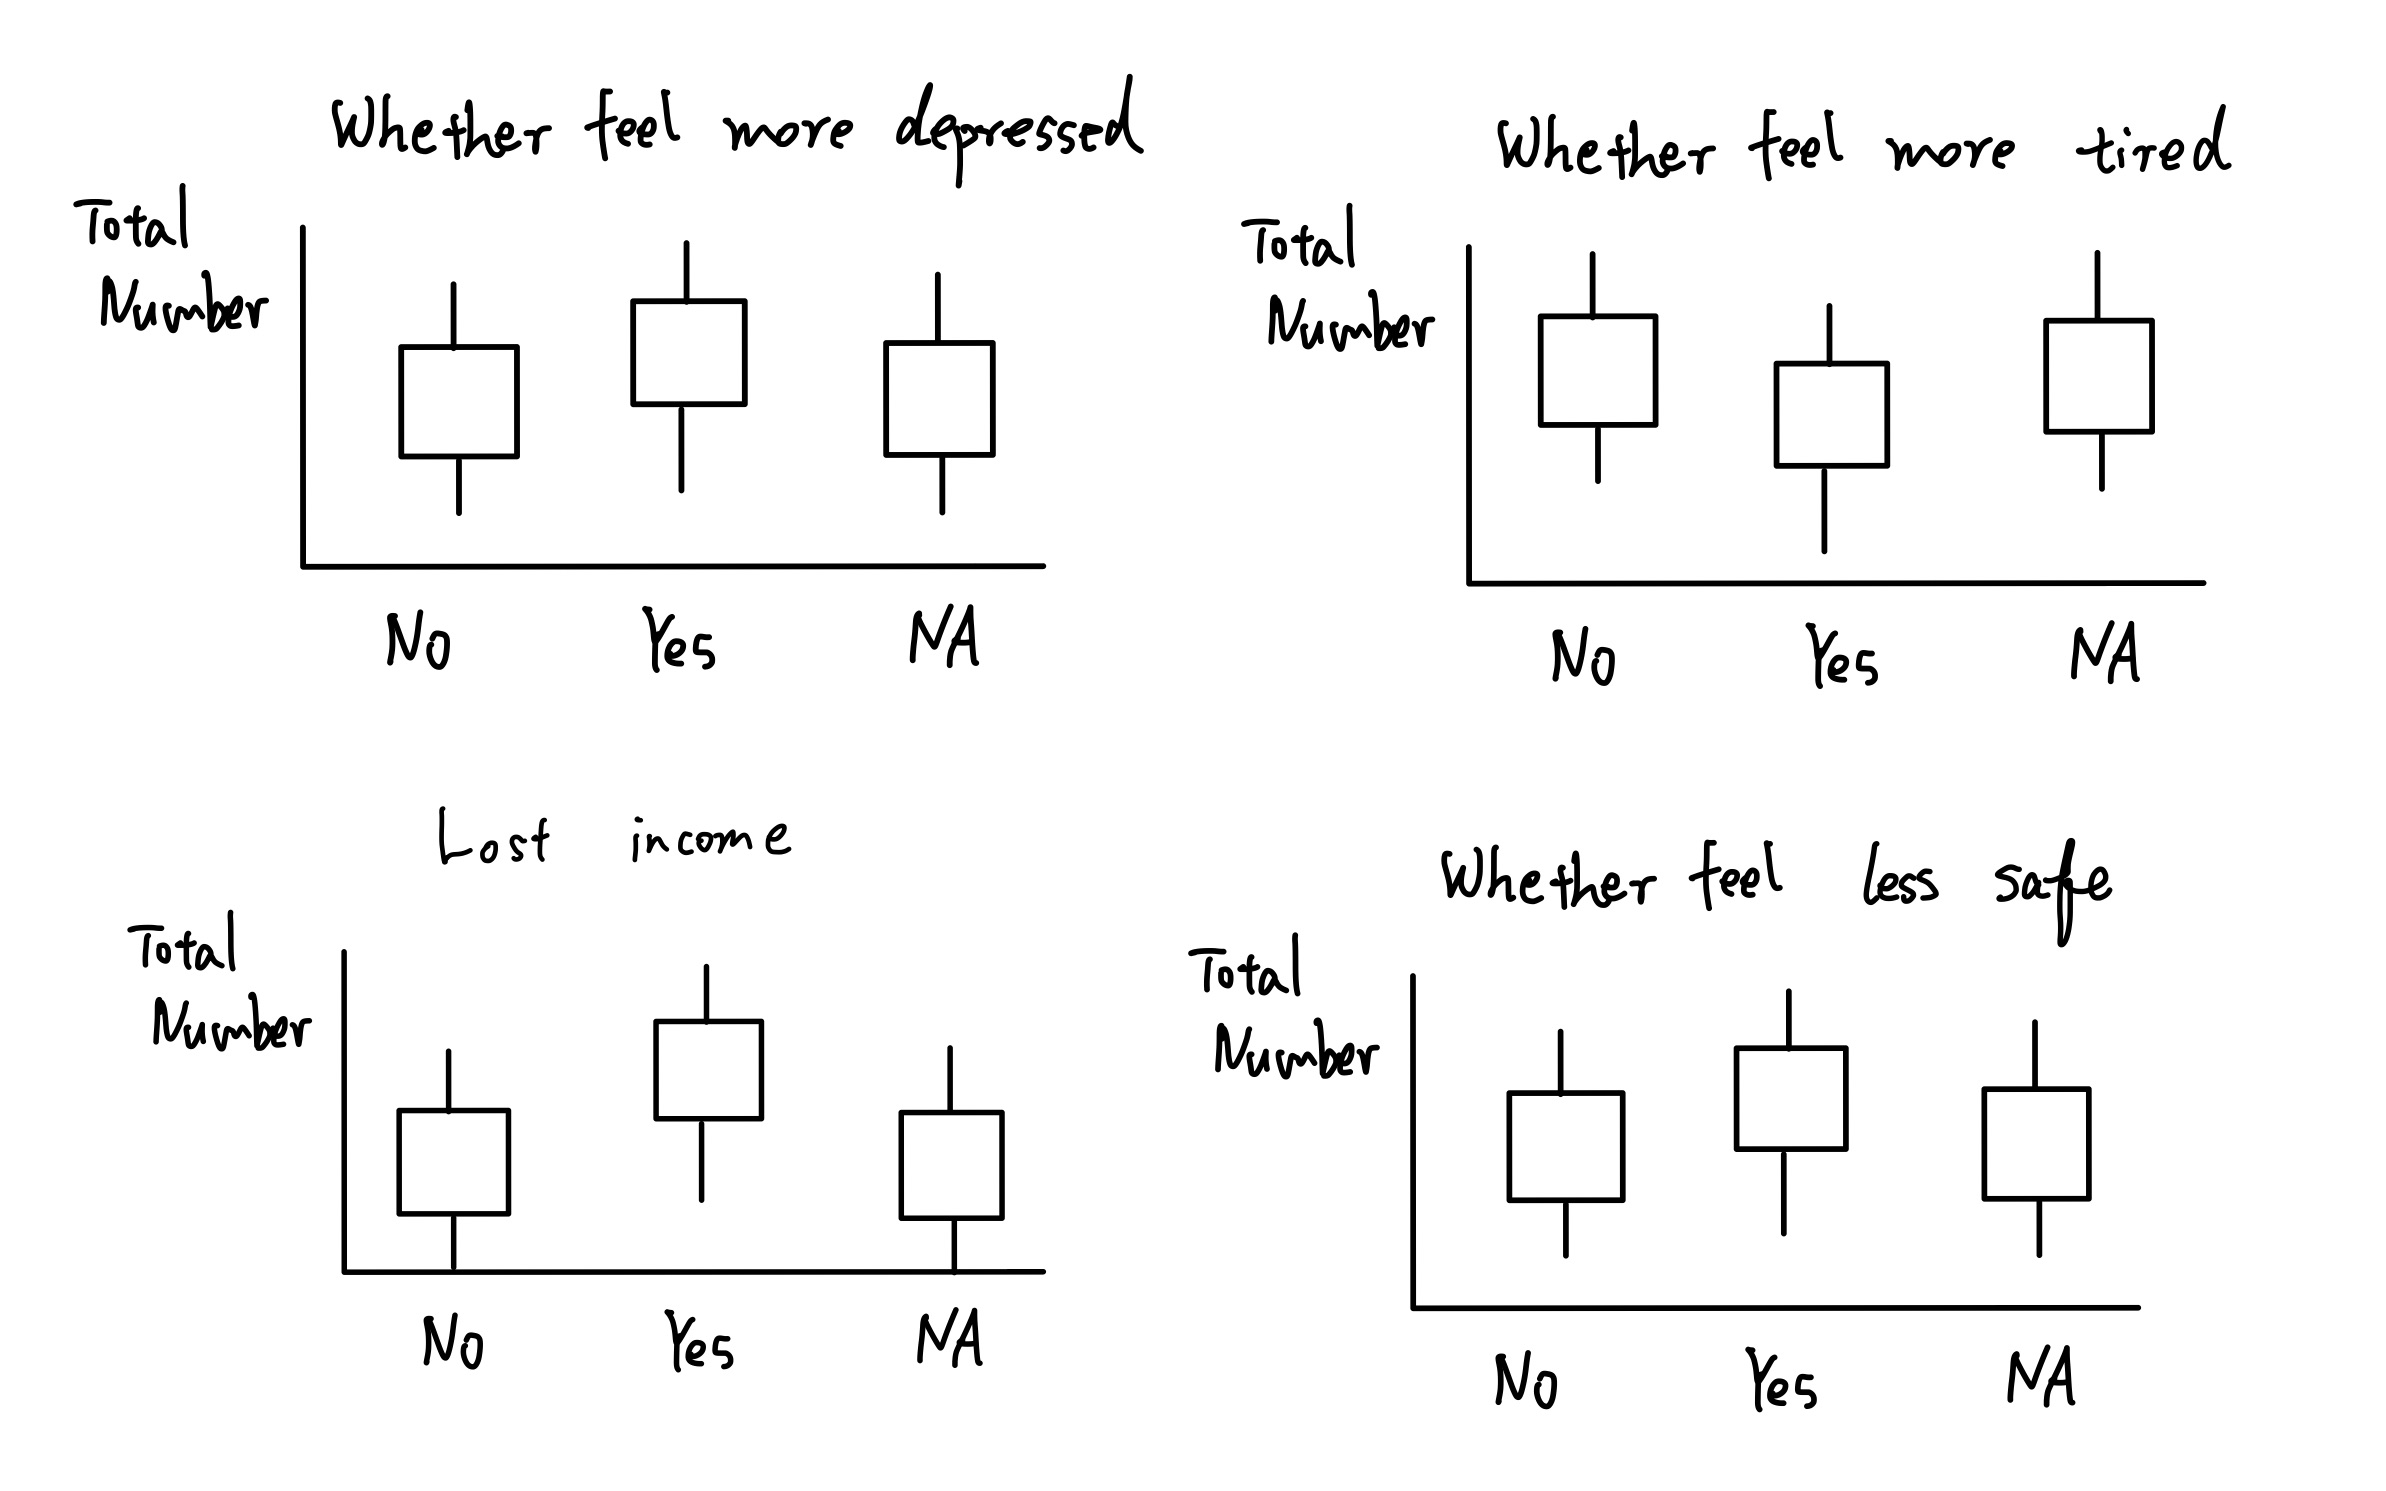 Whether feel more depressed
Total
Number
No Yes NA
Whether feel more tired
Total
Number
No Yes NA
Lost income
Total
Number
No Yes NA
Whether feel less safe
Total
Number
No Yes NA